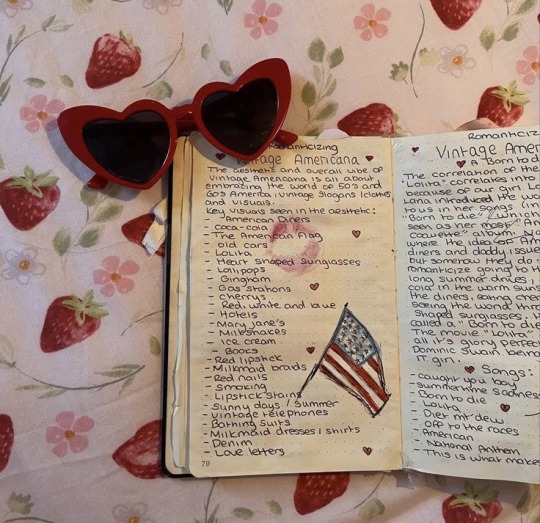 Romanticizing
Vintage Americana
The aesthetic and overall vibe of
Vintage Americana is all about
embrazing the world of 50s and
60s America, vintage slogans, clothes
and visuals.
Key visuals seen in the aesthetic:
- American Diners
- Coca-cola
- The American flag
- old cars
- Lolita
- Heart shaped sunglasses
- Lollipops
- Gingham
- Gas stations
- cherrys
- Red, white and blue
- Hotels
- Mary Jane's
- Milkshakes
- Ice cream
- Books
- Red lipstick
- Milkmaid braids
- Red nails
- Smoking
- Lipstick stains
- Sunny days / Summer
- vintage telephones
- Bathing suits
- Milkmaid dresses / shirts
- Denim
- Love letters
70
Romanticiz
Vintage Amer
A "Born to d
The correlation of the
Lolita" correlates in
because of our girl La
Lana introduced the wor
to us in her songs (in
"Born to die", which
seen as her most An
coquette" album. No
where the idea of Am
diners and daddy issue
someness they do
romanticize going to th
long summer drives,
cola in the warm sun
the diners, eating cher
seeing the world thro
shaped sunglasses,
called a "Born to die
The movie "Lolita",
all it's glory perfec
Dominic Swain being
IT girl.
Songs:
- caught you boy
- summertime sadness
- Born to die
- Lolita
- Diet mt dew
- Off to the races
- American
- National Anthem
- This is what makes